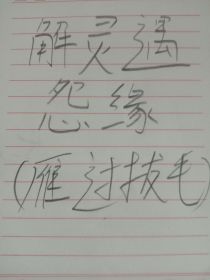 解灵遇
怨缘
(雁过拔毛)